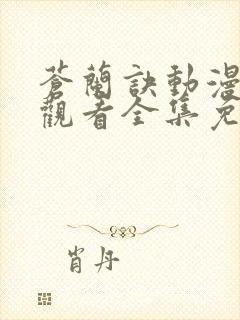 蒼蘭訣動漫
觀看全集免
肖丹